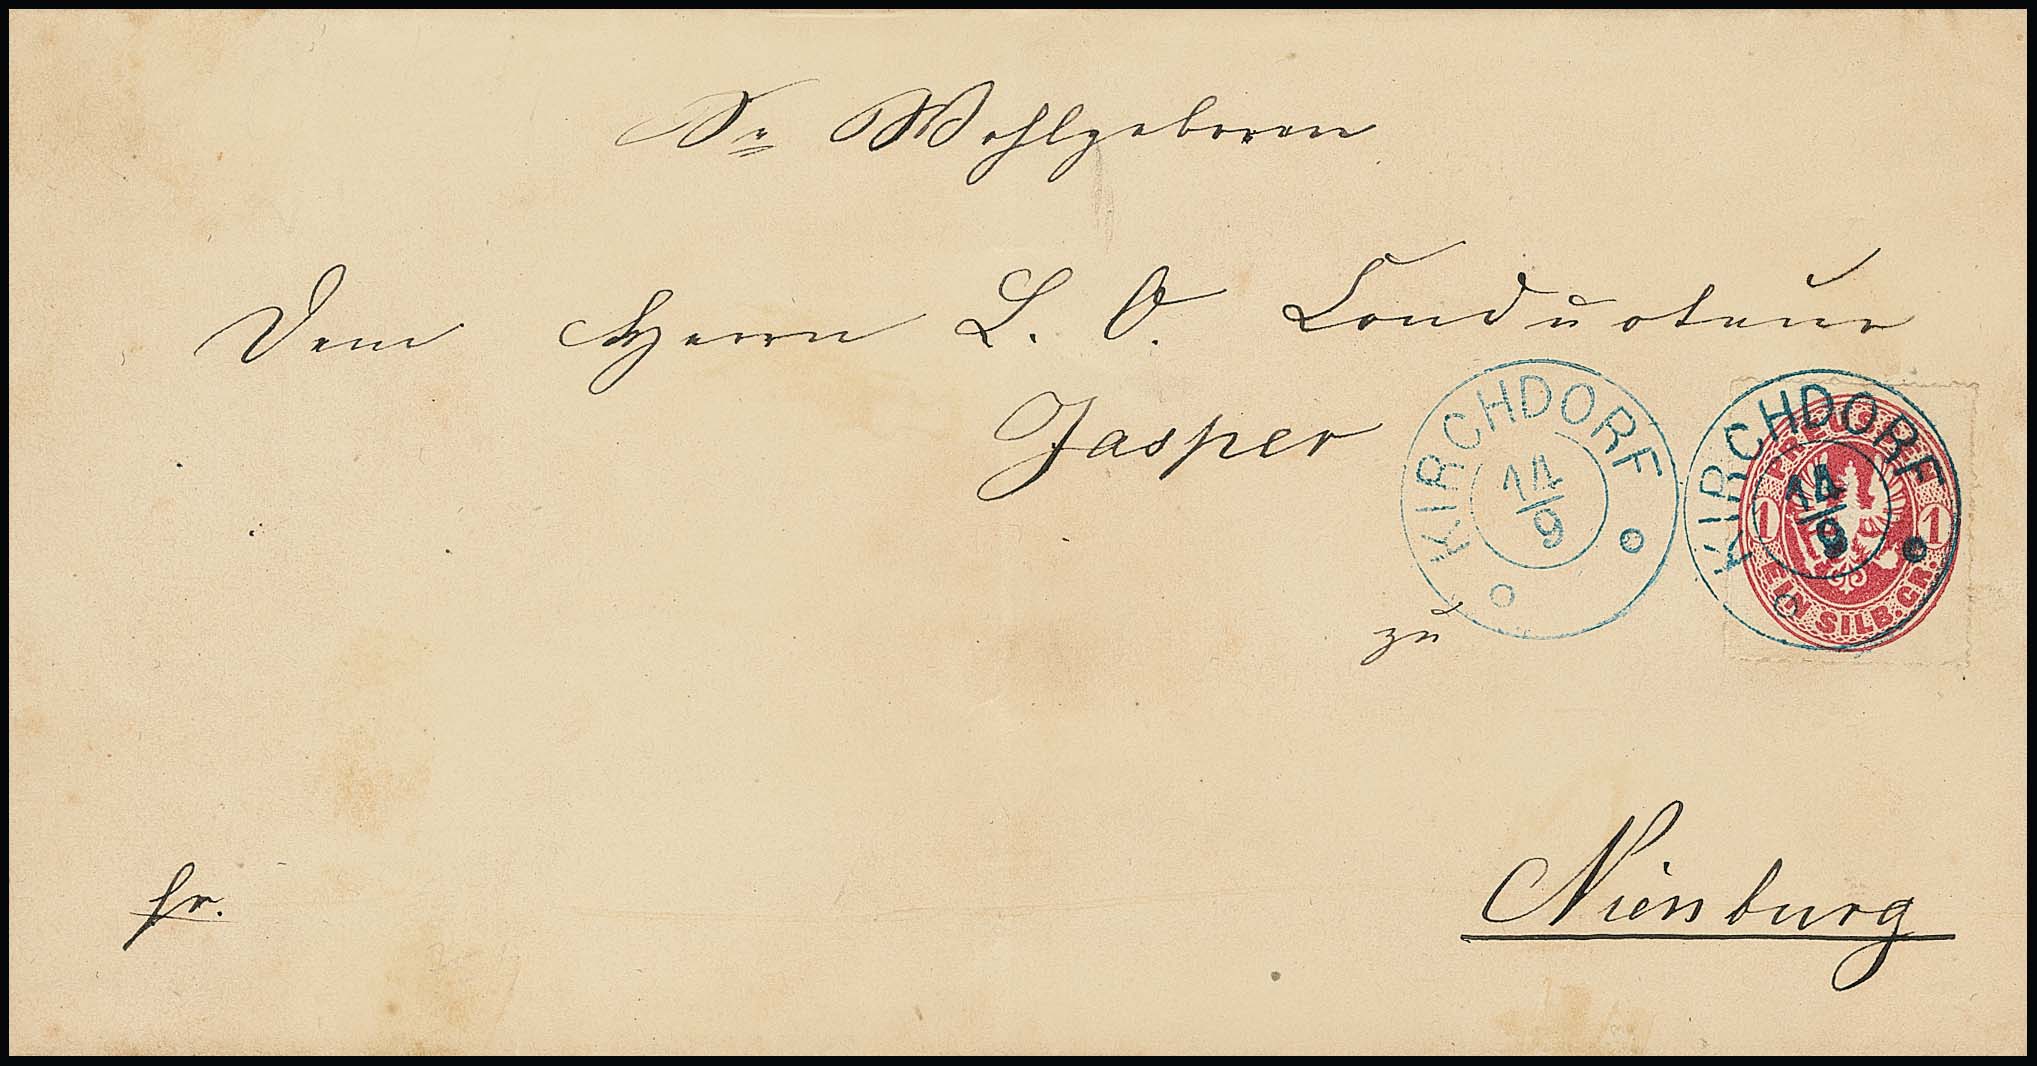 Sr Wohlgeboren
Dem Herrn L. O. Conducteur
Jasper
KIRCHDORF
14
9
KIRCHDORF
14
9
PREUSSEN
1 1
EIN SILB. GR.
zu
Nienburg
fr.